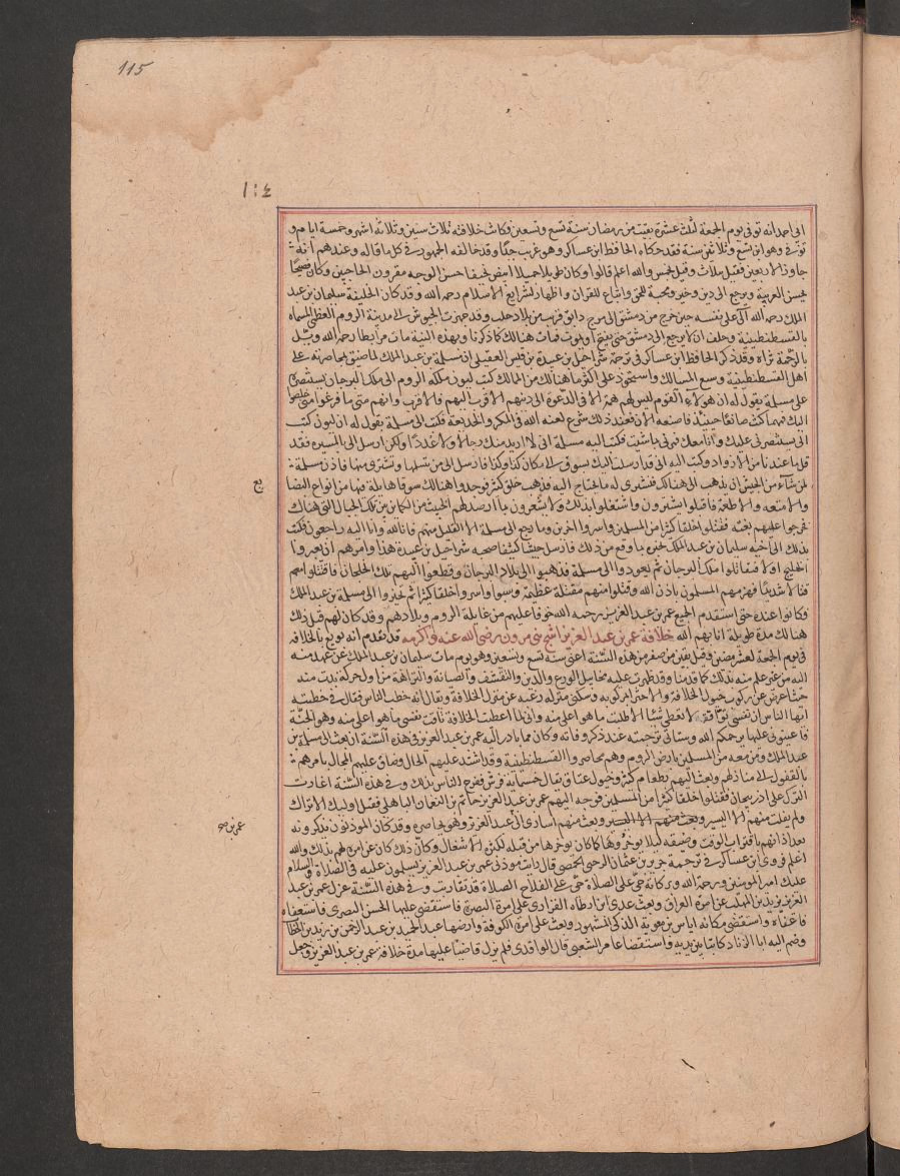 115
١١٤
الى احد انه توفى يوم الجمعة لثلث عشرة بقيت من رمضان سنة تسع وتسعين فكانت خلافته ثلاث سنين وثلاثة اشهر وخمسة ايام و
توفى وهو ابن تسع وثلاثين سنة فقد حكاه الحافظ ابن عساكر وهو غريب جدًا وقد خالفه الجمهور في كل ما قاله وعندهم انه
جاوز الاربعين فقيل بثلاث وقيل بخمس والله اعلم قالوا وكان طويلا جميلا ابيض نحيفا حسن الوجه مقرون الحاجبين وكان فصيحًا
يحسن العربية ويرجع الى دين وخير ومحبة للحق واتباع للقران واظهار لشرايع الاسلام رحمه الله وقد كان الخليفة سليمان بن عبد
الملك رحمه الله آلى على نفسه حين خرج من دمشق الى مرج دابق قريب من بلاد حلب وقد جهزت الجيوش الى مدينة الروم العظمى المسماه
بالقسطنطينية وحلف ان لا يرجع الى دمشق حتى يفتح او يموت فمات هنالك كما ذكرنا وبهذه النية مات مرابطا رحمه الله وبل
بالرحمة ثراه وقد ذكر الحافظ ابن عساكر في ترجمة شراحيل بن عبيدة بن قيس العقيلى ان مسلمة بن عبد الملك لما ضيق بمحاصرته على
اهل القسطنطينية وسع المسالك واستحوذ على اكثر ما هنالك من الممالك كتب ليون ملك الروم الى ملك البرجان يستنصره
على مسلمة يقول له ان هولاء القوم ليس لهم همة الا في الدعوة الى دينهم الاقرب اليهم فالاقرب وانهم متى ما فرغوا منى خلص
اليك فمهما كنت صانعًا حينئذ فاصنعه الان فعند ذلك شرع لعنه الله في المكر والخديعة فكتب الى مسلمة يقول له ان ليون كتب
الى يستنصرنى عليك وانا معك فمرنى بما شئت فكتب اليه مسلمة انى لا اريد منك رجالا ولا عُددًا ولكن ارسل الى بالميسرة فقد
قل ما عندنا من الازواد وكتب اليه انى قد ارسلت اليك بسوق الى مكان كذا وكذا فارسل الى من يتسلمها ويشترى منها فاذن مسلمة
لمن شآء من الجيش ان يذهب الى هنالك فيشترى له ما يحتاج اليه فذهب خلق كثير فوجدوا هنالك سوقا هايلة فيها من انواع البضا
يع
والامتعه والاطعمة فاقبلوا يشترون واشتغلوا بذلك ولا يشعرون بما ارصد لهم الخبيث من الكماين بين تلك الجبال التى هناك
فخرجوا عليهم بغتة فقتلوا خلقا كثيرا من المسلمين واسروا اخرين وما رجع الى مسلمة الا القليل منهم فانا لله وانا اليه راجعون فكتب
بذلك الى اخيه سليمان بن عبد الملك يخبره بما وقع من ذلك فارسل جيشا كثيفا صحبه شراحيل بن عبيدة هذا وامرهم ان يعبروا
الخليج اولا فيقاتلوا ملك البرجان ثم يعودوا الى مسلمة فذهبوا الى بلاد البرجان وقطعوا اليهم تلك الخلجان فاقتتلوا معهم
قتالا شديدًا فهزمهم المسلمون باذن الله وقتلوا منهم مقتلة عظيمة وسبوا واسروا خلقا كثيرا ثم تحيزوا الى مسلمة بن عبد الملك
فكانوا عنده حتى استقدم الجميع عمر بن عبد العزيز رحمه الله خوفا عليهم من غايلة الروم وبلادهم وقد كان لهم قبل ذلك
هنالك مدة طويلة اثابهم الله خلافة عمر بن عبد العزيز اشج بنى مرون رضى الله عنه واكرمه قد تقدم انه بويع بالخلافة
فى يوم الجمعة لعشر مضين وقيل بقين من صفر من هذه السنة اعنى سنة تسع وتسعين وهو يوم مات سليمان بن عبد الملك عن عهد منه
اليه من غير علم منه بذلك كما قدمنا وقد ظهرت عليه مخايل الورع والدين والتقشف والصيانة والنزاهة من اول حركة بدت منه
حيث اعرض عن ركوب خيول الخلافة والاجتزا بمركوبه وسكنى منزله رغبه عن منزل الخلافة ويقال انه خطب الناس فقال في خطبته
ايها الناس ان نفسى تواقة لا تعطى شيئا الا طلبت ما هو اعلى منه وانى لما اعطيت الخلافة تاقت نفسى ما هو اعلى منه وهو الجنة
فاعينونى عليها يرحمكم الله وستاتى ترجمته عند ذكر وفاته وكان مما بادر اليه عمر بن عبد العزيز في هذه السنة ان بعث الى مسلمة بن
عبد الملك ومن معه من المسلمين بارض الروم وهم محاصروا القسطنطينية وقد اشتد عليهم الحال وضاق عليهم المجال يامرهم
بالقفول الى منازلهم وبعث اليهم بطعام كثير وخيول عتاق يقال خمسماية فرس ففرح الناس بذلك وفي هذه السنة اغارت
الترك على اذربيجان فقتلوا خلقا كثيرا من المسلمين فوجه اليهم عمر بن عبد العزيز حاتم بن النعمان الباهلى فقتل اوليك الاتراك
ولم يفلت منهم الا اليسير وبعث منهم الا اليسير وبعث منهم اسارى الى عبد العزيز وهو بخناصره وقد كان الموذنون يذكرونه
عمر بن صح
بعد اذانهم باقتراب الوقت وضيقه ليلا يوخرها كما كان يوخرها من قبله لكثرة الاشغال وكان ذلك كان عن امره لهم بذلك والله
اعلم فروى ابن عساكر في ترجمة حريز بن عثمان الرحبى الحمصى قال رايت موذنى عمر بن عبد العزيز يسلمون عليه في الصلاة السلام
عليك امير المومنين ورحمة الله وبركاته حى على الصلاة حى على الفلاح الصلاة قد تقاربت وفي هذه السنة عزل عمر بن عبد
العزيز يزيد بن المهلب عن امرة العراق وبعث عدى ابن ارطاه الفزارى على امرة البصرة فاستقضى عليها الحسن البصرى فاستعفاه
فاعفاه واستقضى مكانه اياس بن معوية الذكى المشهور وبعث على امرة الكوفة وارضها عبد الحميد بن عبد الرحمن بن زيد بن الخطا
وضم اليه ابا الزناد كاتبا بين يديه فاستقضا عامر الشعبى قال الواقدى فلم يزل قاضيا عليها مدة خلافة عمر بن عبد العزيز وجعل